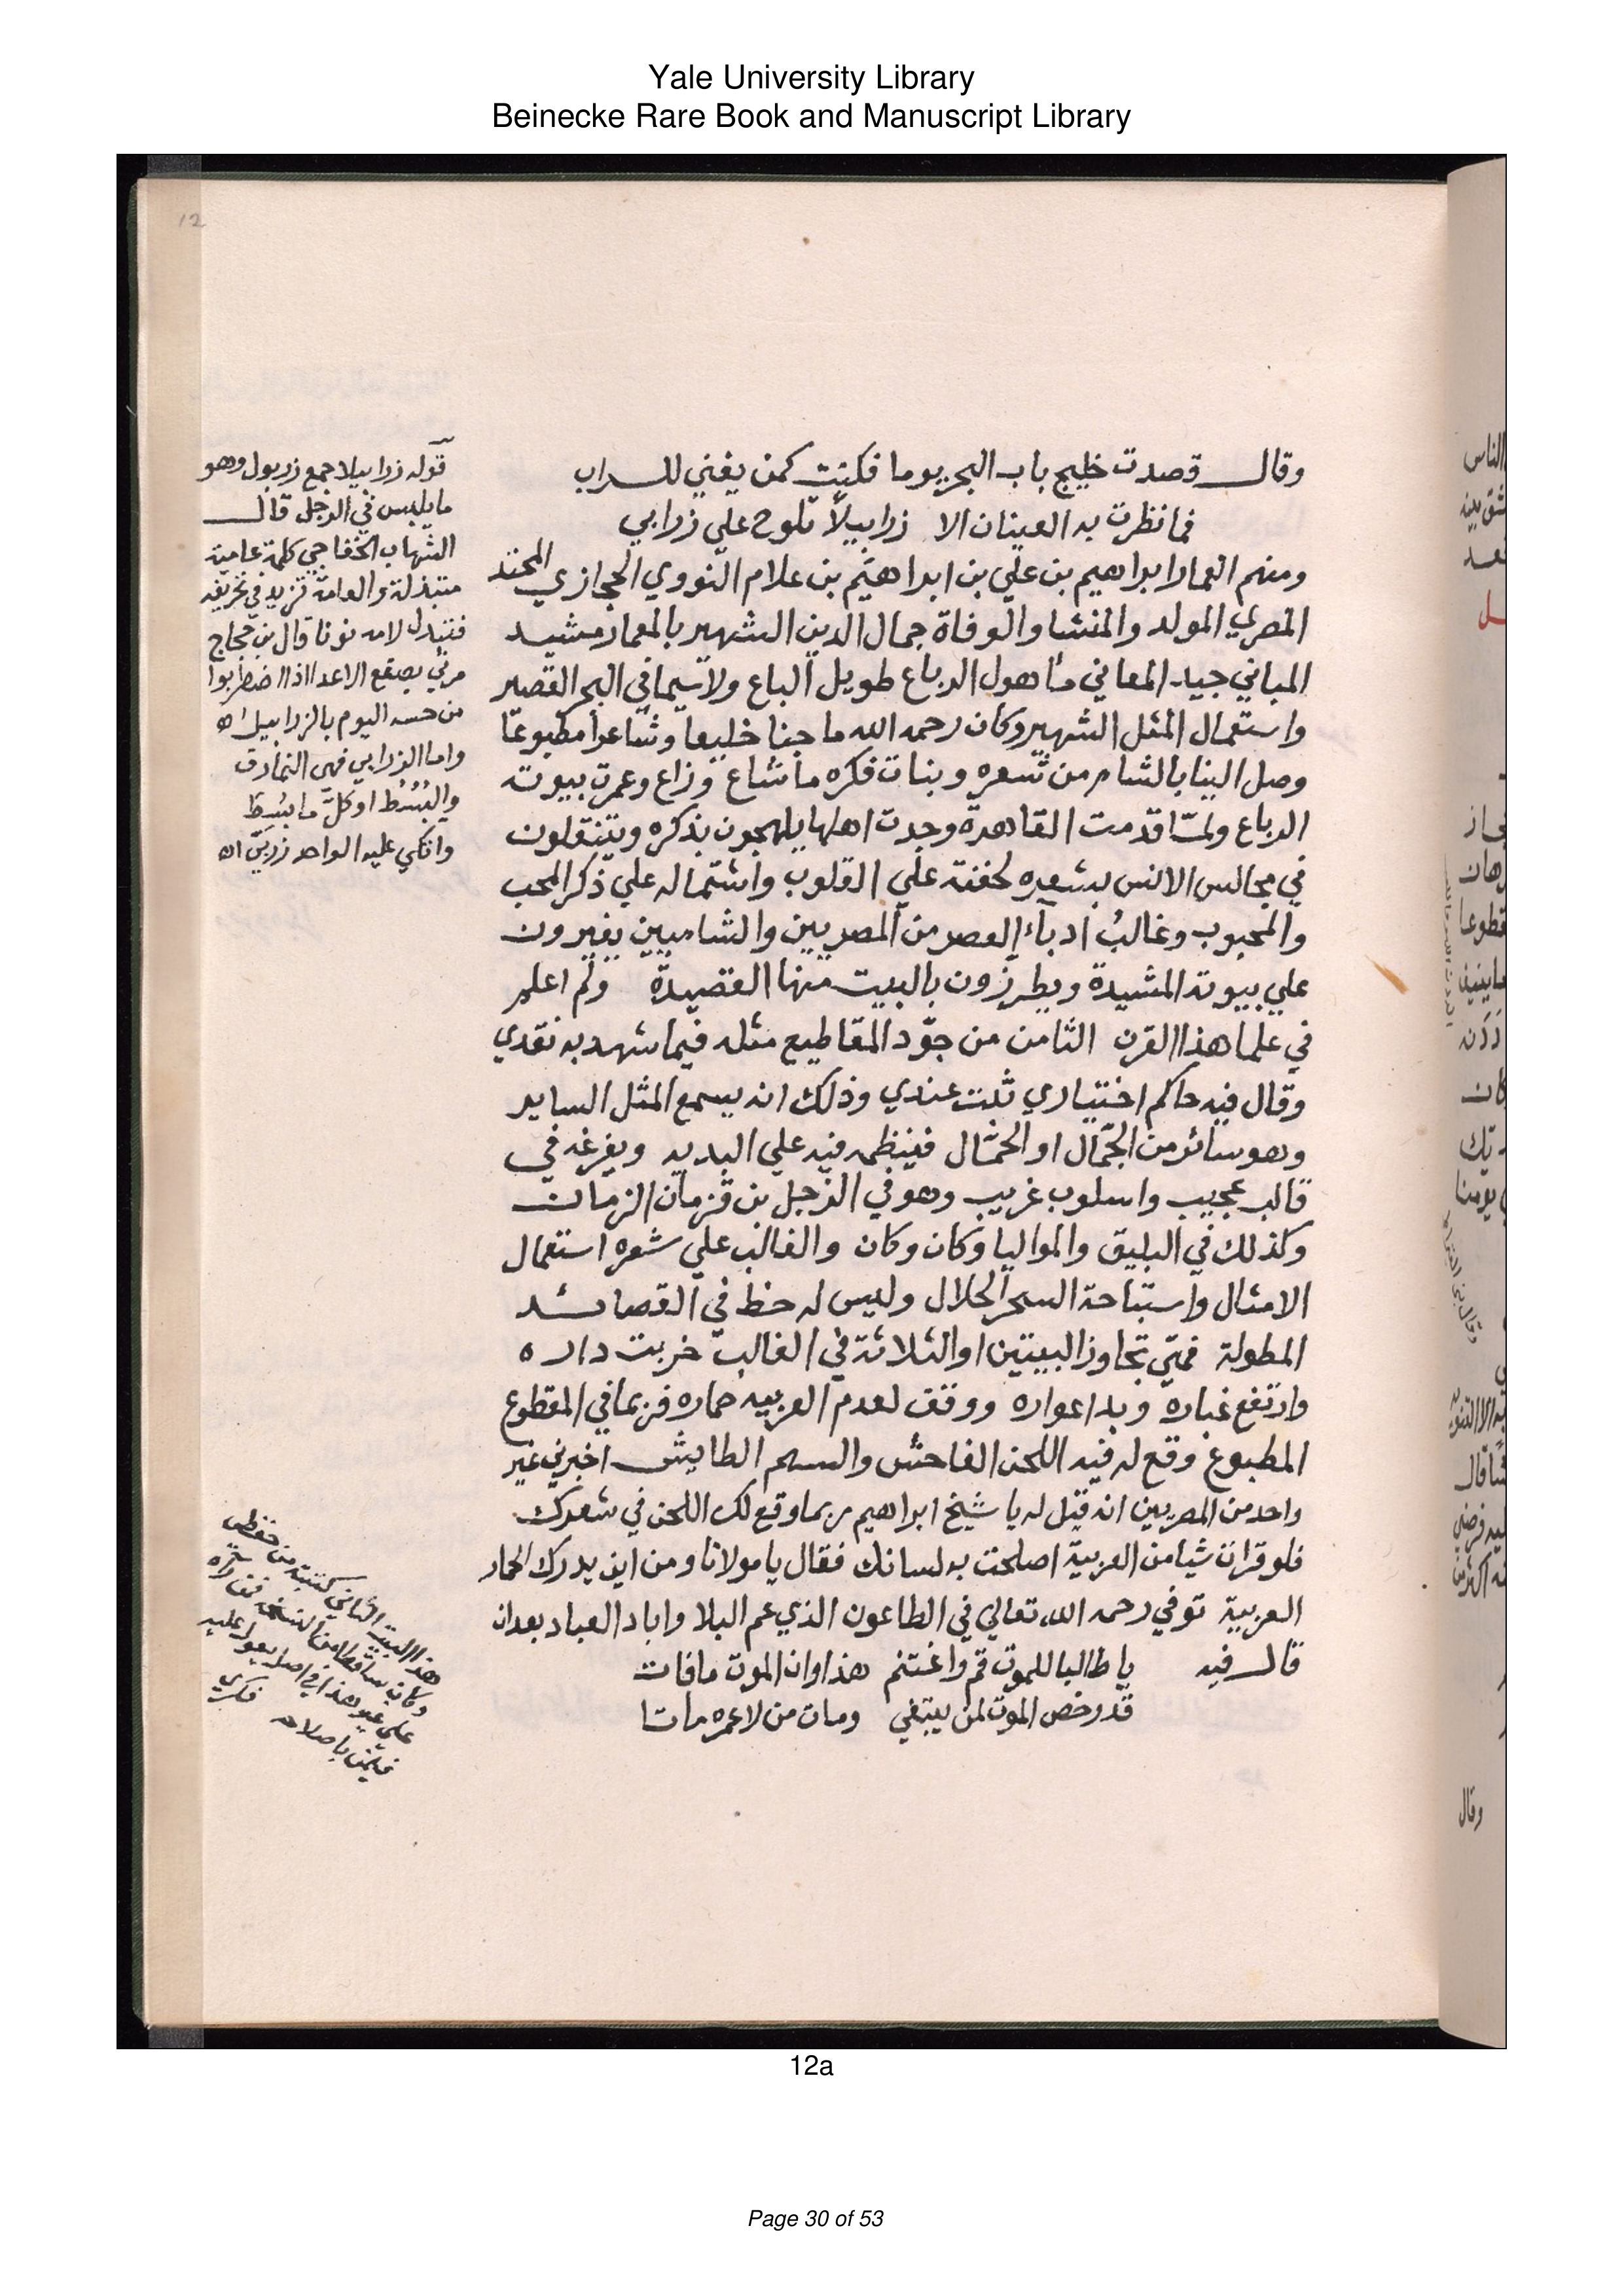 Yale University Library
Beinecke Rare Book and Manuscript Library
12
وقال قصدت خليج باب البحر يوما فكنت كمن يغني للسراب
فما نظرت به العينان الا زرابيلا تلوح علي زرابي
ومنهم المعمار ابراهيم بن علي بن ابراهيم بن علام النووي الحجازي المحتد
المصري المولد والمنشا والوفاة جمال الدين الشهير بالمعمار مشيد
المباني جيد المعاني ماهول الرباع طويل الباع ولاسيما في البحر القصير
واستعمال المثل الشهير وكان رحمه الله ماجنا خليعا وشاعرا مطبوعا
وصل الينا بالشام من شعره وبنات فكره ما شاع وزاع وعمرت بيوته
الرباع ولما قدمت القاهرة وجدت اهلها يلهجون بذكره ويتنقلون
في مجالس الانس بشعره لخفته علي القلوب واشتماله علي ذكر المحب
والمحبوب وغالبُ ادباء العصر من المصريين والشاميين يغيرون
علي بيوته المشيدة ويطرزون بالبيت منها القصيدة ولم اعلم
في علما هذا القرن الثامن من جوّد المقاطيع مثله فيما شهد به نقدي
وقال فيه حاكم اختياري ثبت عندي وذلك انه يسمع المثل الساير
وهو سائر من الجمّال او الحمّال فينظمه فيه علي البديه ويفرغه في
قالب عجيب واسلوب غريب وهو في الزجل بن قزمان الزمان
وكذلك في البليق والمواليا وكان وكان والغالب علي شعره استعمال
الامثال واستباحة السحر الحلال وليس له حظ في القصائد
المطولة فمتي تجاوز البيتين او الثلاثة في الغالب خربت داره
وارتفع غباره وبدا عواره ووقف لعدم العربيه حماره فربما في المقطوع
المطبوع وقع له فيه اللحن الفاحش والسهم الطايش اخبرني غير
واحد من المصريين انه قيل له يا شيخ ابراهيم ربما وقع لك اللحن في شعرك
فلو قرات شيا من العربية اصلحت به لسانك فقال يا مولانا ومن اين يدرك الحمار
العربية توفي رحمه الله تعالي في الطاعون الذي عم البلا واباد العباد بعد ان
قال فيه يا طالبا للموت قم واغتنم هذا اوان الموت ما فات
قد رخص الموت لمن يبتغي ومات من لا عمره ماتا
قوله زرابيلا جمع زربول وهو
ما يلبس في الرجل قال
الشهاب الخفاجي كلمة عامية
مبتذلة والعامة تزيد في تحريفه
فتبدل لامه نونا قال بن حجاج
مرئي يصقع الاعدا اذا اضطربوا
من حسه اليوم بالزرابيل اه
واما الزرابي فهي النمارق
والبُسُط او كلّ ما بُسِط
واتكي عليه الواحد زربيّ اه
هذا البيت الثاني كتبته من حفظي
وكان ساقطا من النسخه فمن راه
علي غير هذا في اصل يعول عليه
فليمن باصلاحه فكري
12a
Page 30 of 53